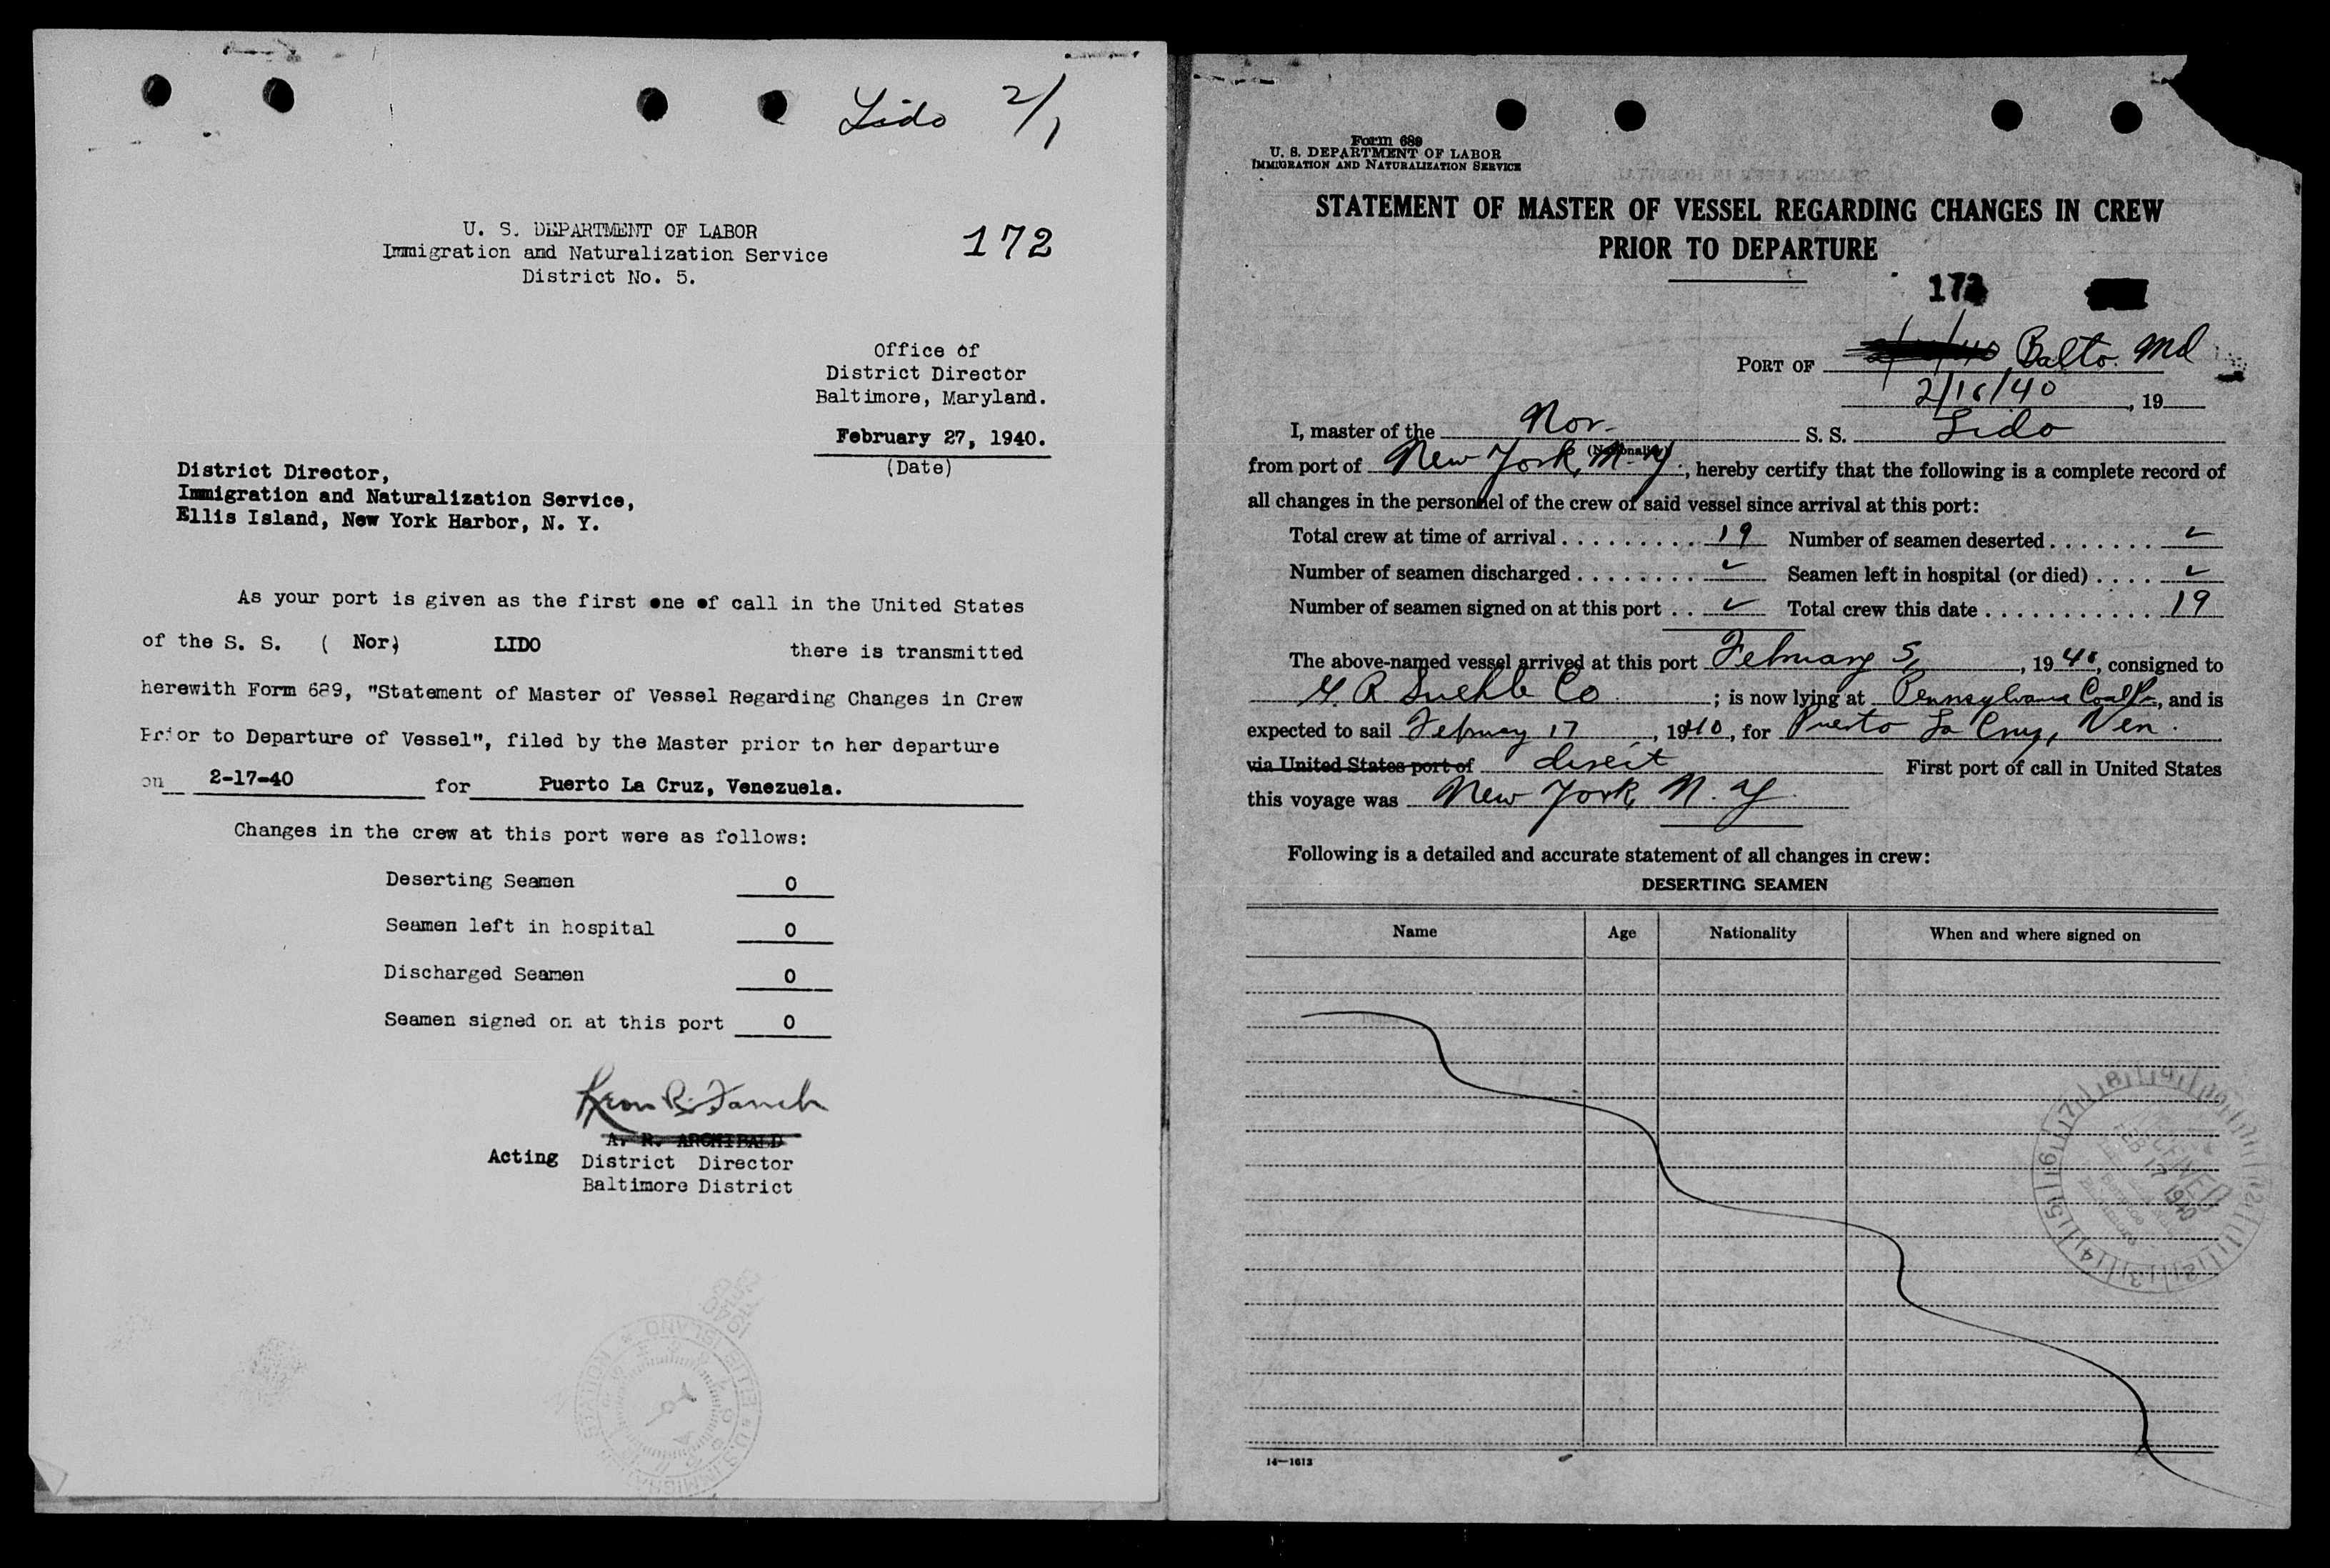 Lido 2/1
U. S. DEPARTMENT OF LABOR
Immigration and Naturalization Service
District No. 5.
172
Office of
District Director
Baltimore, Maryland.
February 27, 1940.
(Date)
District Director,
Immigration and Naturalization Service,
Ellis Island, New York Harbor, N. Y.
As your port is given as the first one of call in the United States
of the S. S. ( Nor) LIDO there is transmitted
herewith Form 689, "Statement of Master of Vessel Regarding Changes in Crew
Prior to Departure of Vessel", filed by the Master prior to her departure
on 2-17-40 for Puerto La Cruz, Venezuela.
Changes in the crew at this port were as follows:
Deserting Seamen 0
Seamen left in hospital 0
Discharged Seamen 0
Seamen signed on at this port 0
A. R. ARCHIBALD
Acting District Director
Baltimore District
Form 689
U. S. DEPARTMENT OF LABOR
IMMIGRATION AND NATURALIZATION SERVICE
STATEMENT OF MASTER OF VESSEL REGARDING CHANGES IN CREW
PRIOR TO DEPARTURE
172
PORT OF Balto. Md
2/16/40, 19
I, master of the Nor. S. S. Lido
(Nationality)
from port of New York, N. Y., hereby certify that the following is a complete record of
all changes in the personnel of the crew of said vessel since arrival at this port:
Total crew at time of arrival . . . . . . . . . 19 Number of seamen deserted . . . . . . . ✓
Number of seamen discharged . . . . . . . . ✓ Seamen left in hospital (or died) . . . . ✓
Number of seamen signed on at this port . . ✓ Total crew this date . . . . . . . . . . . . 19
The above-named vessel arrived at this port February 5, 1940, consigned to
Co ; is now lying at Pennsylvania Coal Pr, and is
expected to sail February 17, 1940, for Puerto La Cruz, Ven.
via United States port of direit First port of call in United States
this voyage was New York, N. Y.
Following is a detailed and accurate statement of all changes in crew:
DESERTING SEAMEN
Name Age Nationality When and where signed on
FEB 17 1940
14—1613